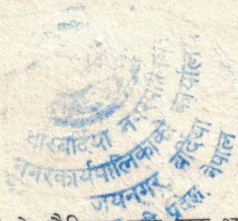 बारबर्दिया नगरपालिका
नगरकार्यपालिकाको कार्यालय
जयनगर, बर्दिया
प्रदेश, नेपाल